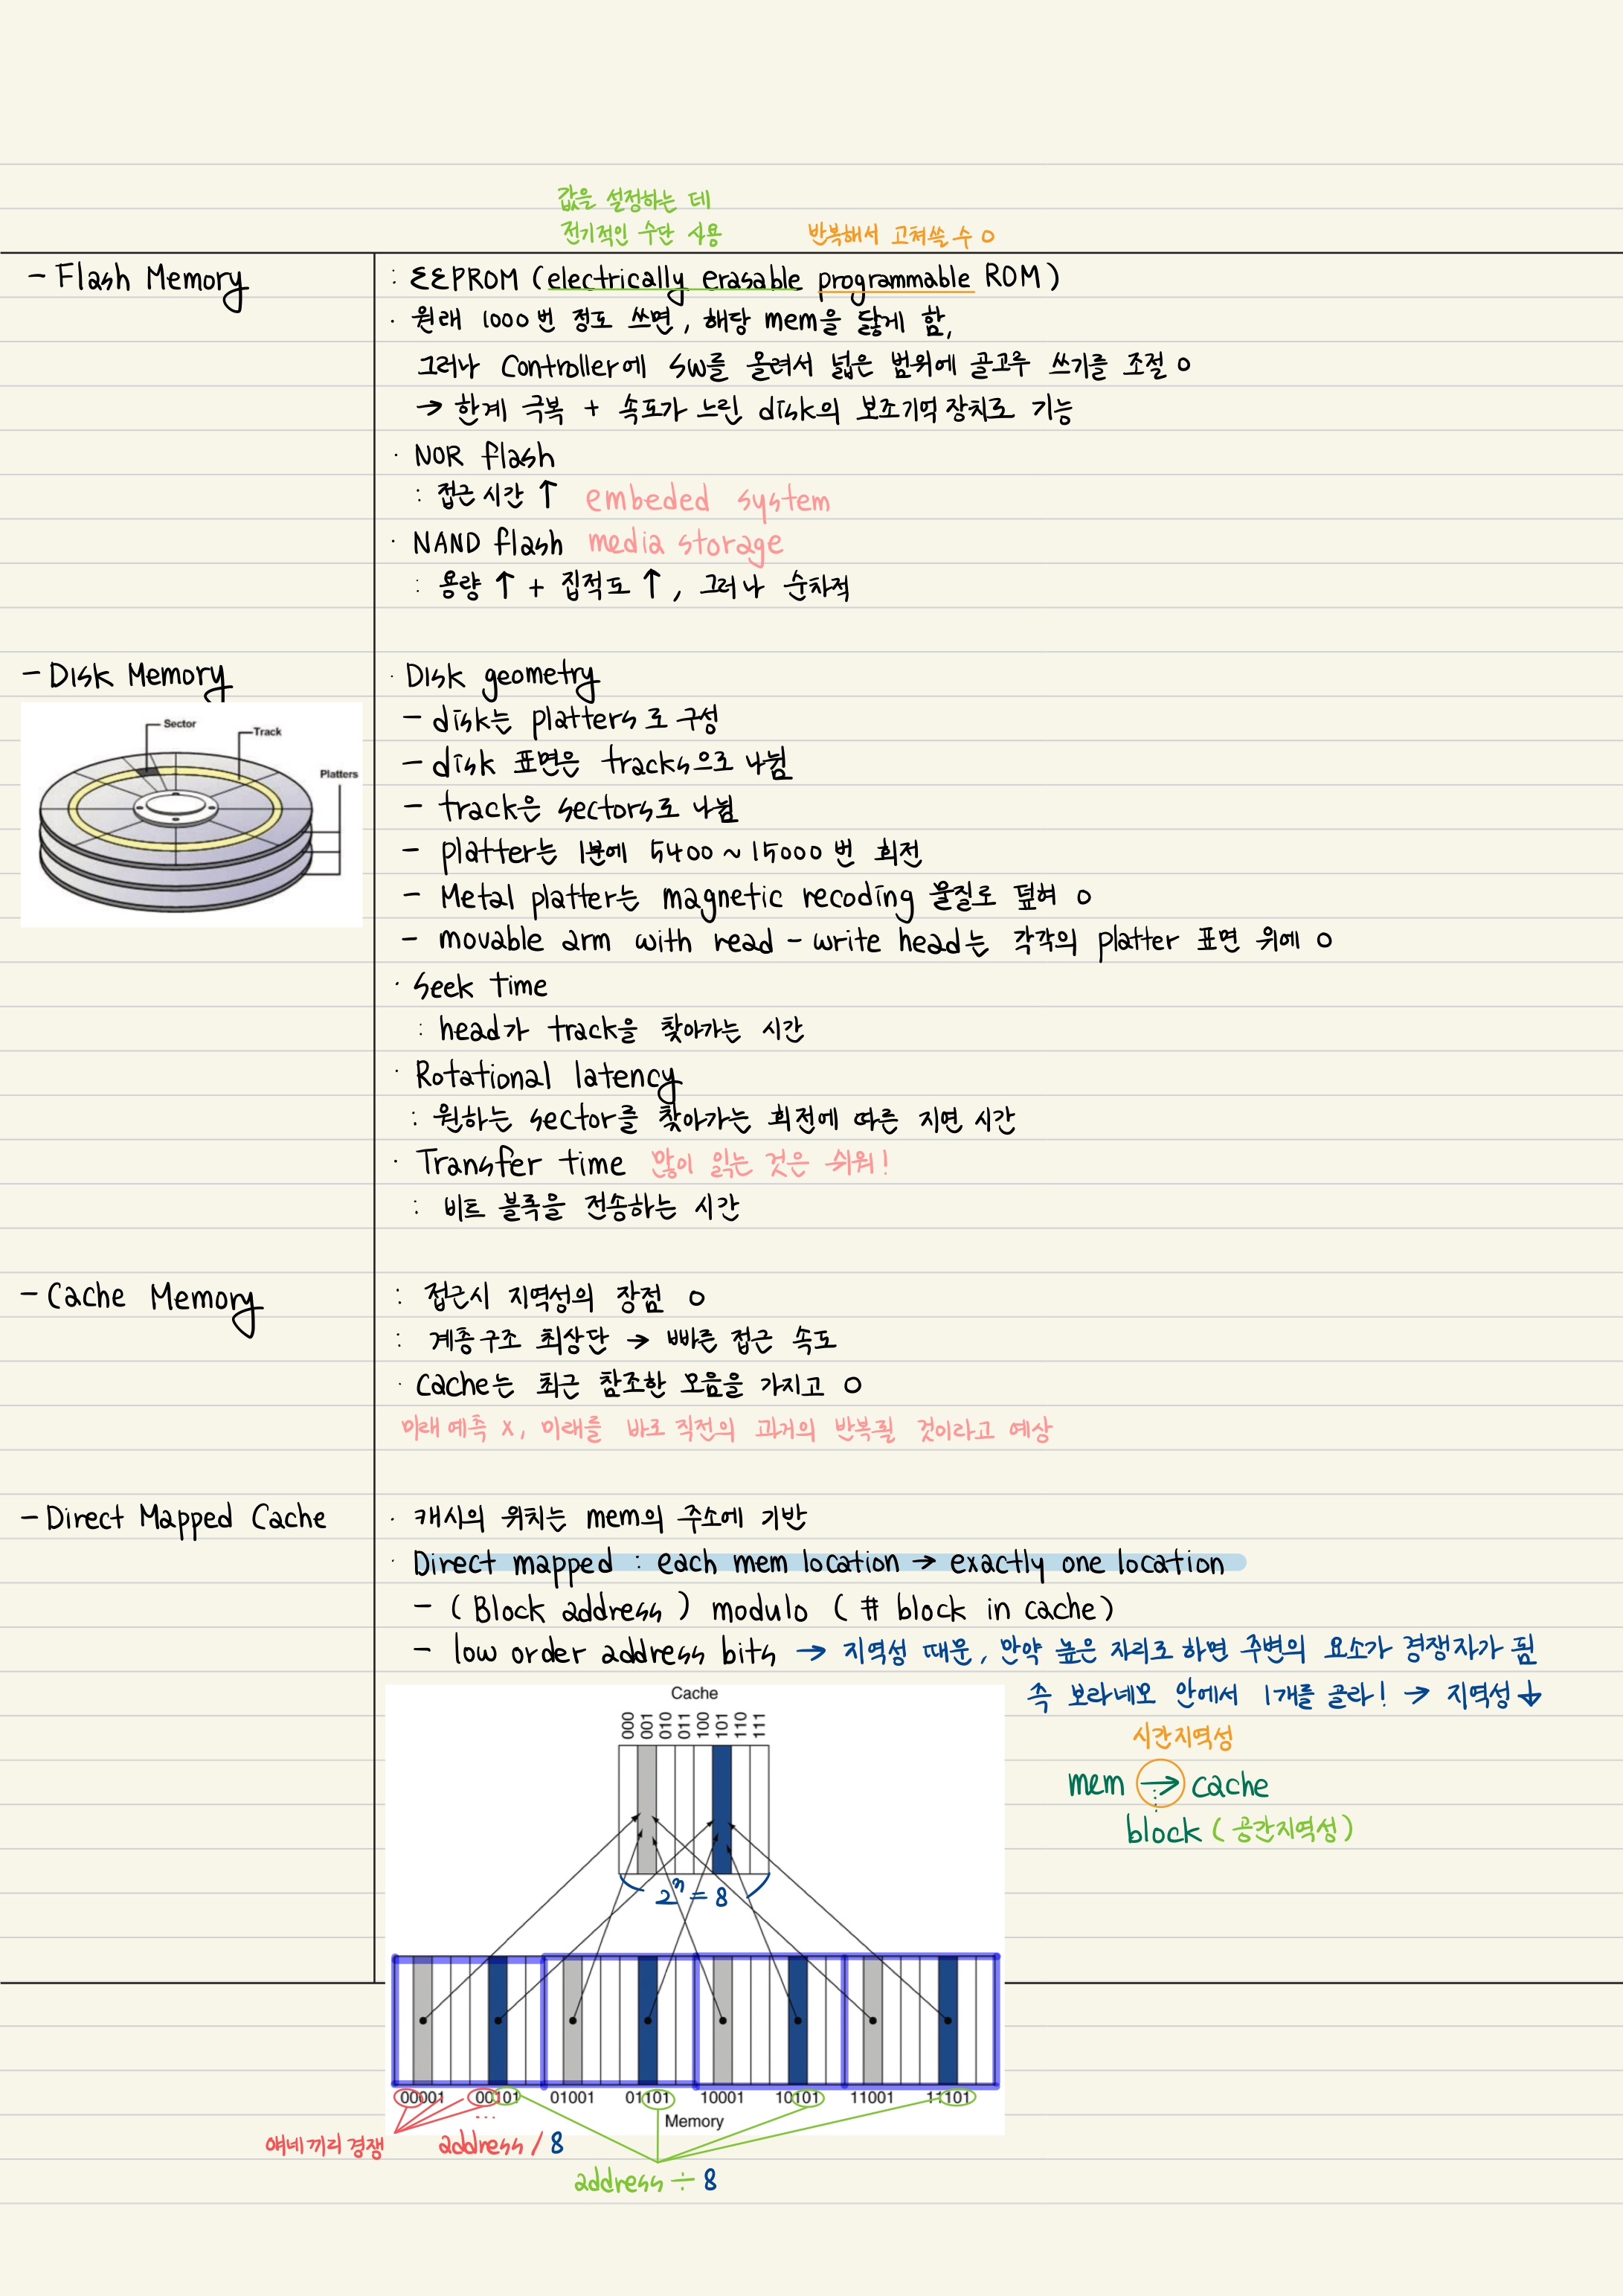 값을 설정하는 데
전기적인 수단 사용
반복해서 고쳐쓸 수 O
- Flash Memory
: EEPROM (electrically erasable programmable ROM)
· 원래 1000번 정도 쓰면, 해당 mem을 닳게 함,
그러나 Controller에 SW를 올려서 넓은 범위에 골고루 쓰기를 조절 O
→ 한계 극복 + 속도가 느린 disk의 보조기억장치로 기능
· NOR flash
: 접근 시간 ↑ embeded system
· NAND flash media storage
: 용량 ↑ + 집적도 ↑, 그러나 순차적
- Disk Memory
Sector
Track
Platters
· Disk geometry
- disk는 platters로 구성
- disk 표면은 tracks으로 나뉨
- track은 sectors로 나뉨
- platter는 1분에 5400 ~ 15000 번 회전
- Metal platter는 magnetic recoding 물질로 덮혀 O
- movable arm with read - write head는 각각의 platter 표면 위에 O
· Seek time
: head가 track을 찾아가는 시간
· Rotational latency
: 원하는 sector를 찾아가는 회전에 따른 지연 시간
· Transfer time 많이 읽는 것은 쉬워!
: 비트 블록을 전송하는 시간
- Cache Memory
: 접근시 지역성의 장점 O
: 계층구조 최상단 → 빠른 접근 속도
· Cache는 최근 참조한 모음을 가지고 O
미래 예측 X, 미래를 바로 직전의 과거의 반복될 것이라고 예상
- Direct Mapped Cache
· 캐시의 위치는 mem의 주소에 기반
· Direct mapped : each mem location → exactly one location
- (Block address) modulo (# block in cache)
- low order address bits → 지역성 때문, 만약 높은 자리로 하면 주변의 요소가 경쟁자가 됨
즉 보라네모 안에서 1개를 골라! → 지역성↓
Cache
000 001 010 011 100 101 110 111
2ⁿ = 8
시간지역성
mem → cache
block (공간지역성)
00001 00101 01001 01101 10001 10101 11001 11101
...
Memory
얘네끼리 경쟁
address / 8
address ÷ 8